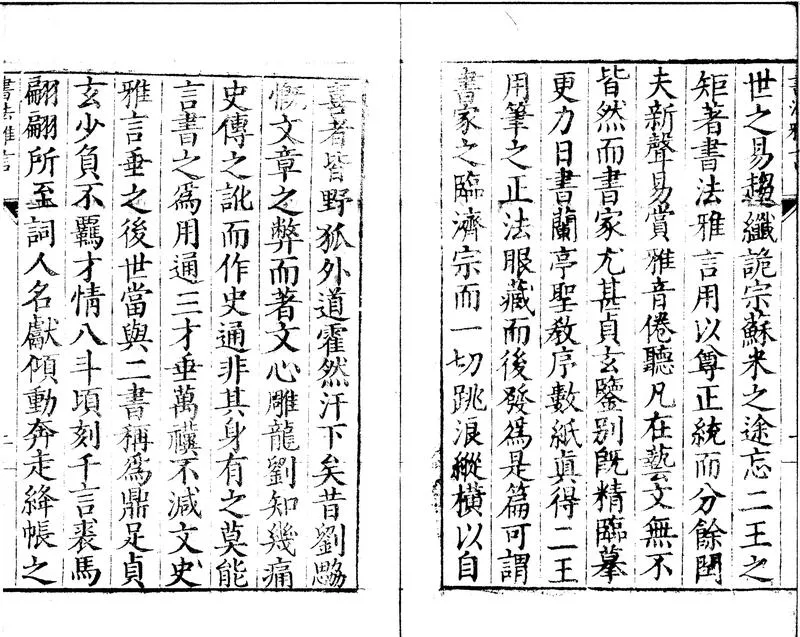 世之易趨纖詭宗蘇米之途忘二王之
矩著書法雅言用以尊正統而分餘閏
夫新聲易賞雅音倦聽凡在藝文無不
皆然而書家尤甚貞玄鑒别旣精臨摹
更力日書蘭亭聖教序數紙眞得二王
用筆之正法眼藏而後發爲是篇可謂
書家之臨濟宗而一切跳浪縱横以自
喜者皆野狐外道霍然汗下矣昔劉勰
慨文章之弊而著文心雕龍劉知幾痛
史傳之訛而作史通非其身有之莫能
言書之爲用通三才垂萬禩不減文史
雅言垂之後世當與二書稱爲鼎足貞
玄少負不羈才情八斗頃刻千言裘馬
翩翩所至詞人名獻傾動奔走絳帳之
書法雅言